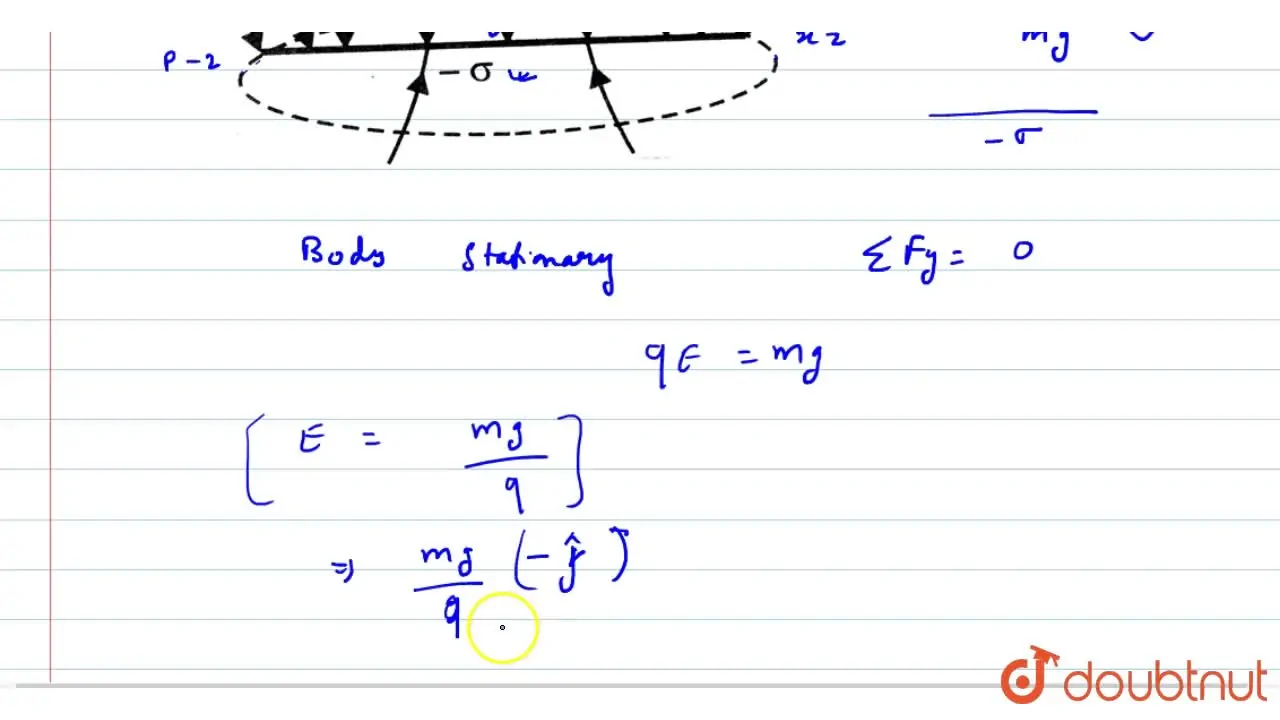 P-2
x2
mg
-σ
-σ
Body stationary ΣFy = 0
qE = mg
[ E = mg/q ]
⇒ mg/q (-ĵ)
doubtnut